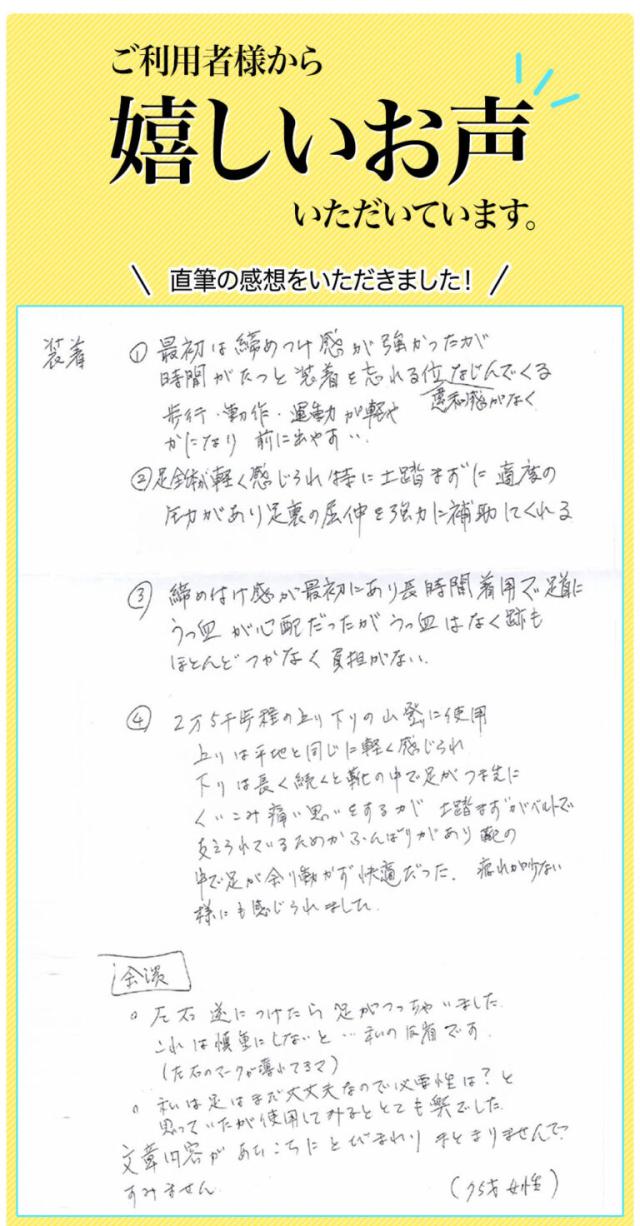 ご利用者様から
嬉しいお声
いただいています。
直筆の感想をいただきました!
装着 ① 最初は締めつけ感が強かったが
時間がたつと装着を忘れる位なじんでくる
違和感がなく
歩行・動作・運動が軽や
かになり 前に出やすい.
②足全体が軽く感じられ特に土踏まずに適度の
圧力があり足裏の屈伸を強力に補助してくれる
③ 締め付け感が最初にあり長時間着用で足首に
うっ血が心配だったがうっ血はなく跡も
ほとんどつかなく負担がない.
④ 2万5千歩程の上り下りの山登りに使用
上りは平地と同じに軽く感じられ
下りは長く続くと靴の中で足がつま先に
くいこみ痛い思いをするが 土踏まずがベルトで
支えられているためかふんばりがあり靴の
中で足が余り動かず快適だった. 疲れが少ない
様にも感じられました.
余談
○ 左右逆につけたら足がつっちゃいました.
これは慎重にしないと…私の反省です.
(左右のマークが薄れてるママ)
○ 私は足はまだ大丈夫なので必要性は?と
思っていたが使用してみるととても楽でした.
文章内容があちこちにとびまわりまとまりませんで
すみません. (75才女性)